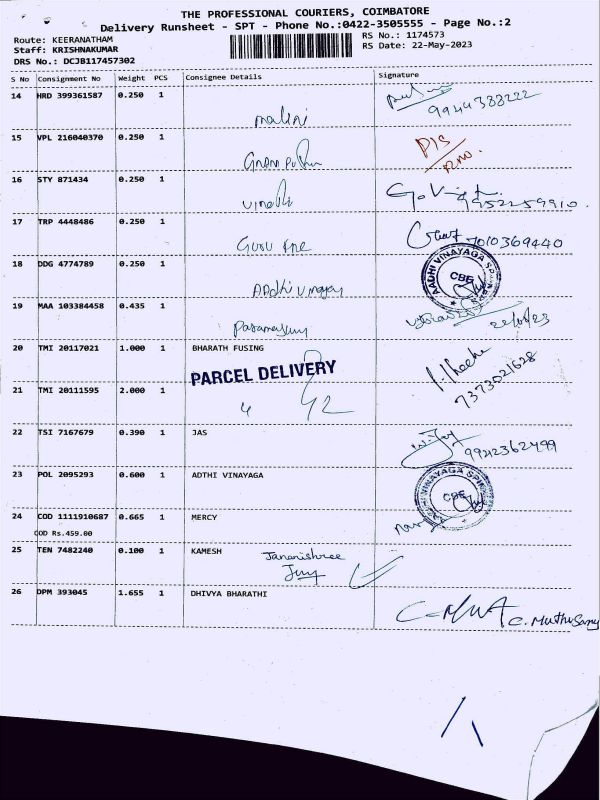 THE PROFESSIONAL COURIERS, COIMBATORE
Delivery Runsheet - SPT - Phone No.:0422-3505555 - Page No.:2
Route: KEERANATHAM
Staff: KRISHNAKUMAR
DRS No.: DCJB117457302
RS No.: 1174573
RS Date: 22-May-2023
S No Consignment No Weight PCS Consignee Details Signature
14 HRD 399361587 0.250 1
malini 9944388222
15 VPL 216040370 0.250 1
16 STY 871434 0.250 1
9952259910.
17 TRP 4448486 0.250 1
Guru 7010369440
18 DDG 4774789 0.250 1
AADHI VINAYAGA
CBE
19 MAA 103384458 0.435 1
20 TMI 20117021 1.000 1 BHARATH FUSING
PARCEL DELIVERY
7373021628
21 TMI 20111595 2.000 1
4 42
22 TSI 7167679 0.390 1 JAS
9942362499
23 POL 2095293 0.600 1 ADTHI VINAYAGA
AADHI VINAYAGA
CBE
24 COD 1111910687 0.665 1 MERCY
COD Rs.459.00
25 TEN 7482240 0.100 1 KAMESH Jananishree
26 DPM 393045 1.655 1 DHIVYA BHARATHI
C. Muthusamy